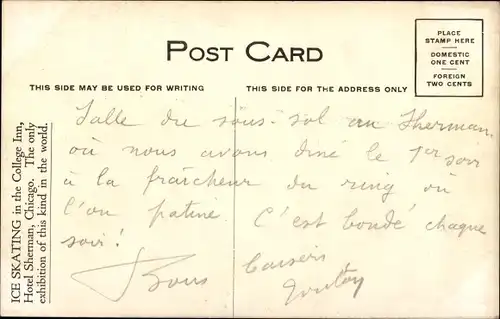 POST CARD
PLACE
STAMP HERE
DOMESTIC
ONE CENT
FOREIGN
TWO CENTS
THIS SIDE MAY BE USED FOR WRITING
THIS SIDE FOR THE ADDRESS ONLY
ICE SKATING in the College Inn,
Hotel Sherman, Chicago. The only
exhibition of this kind in the world.
Salle du sous-sol au Sherman,
où nous avons diné le 1er soir
à la fraîcheur du ring où
l'on patine. C'est bondé chaque
soir!
Bons baisers